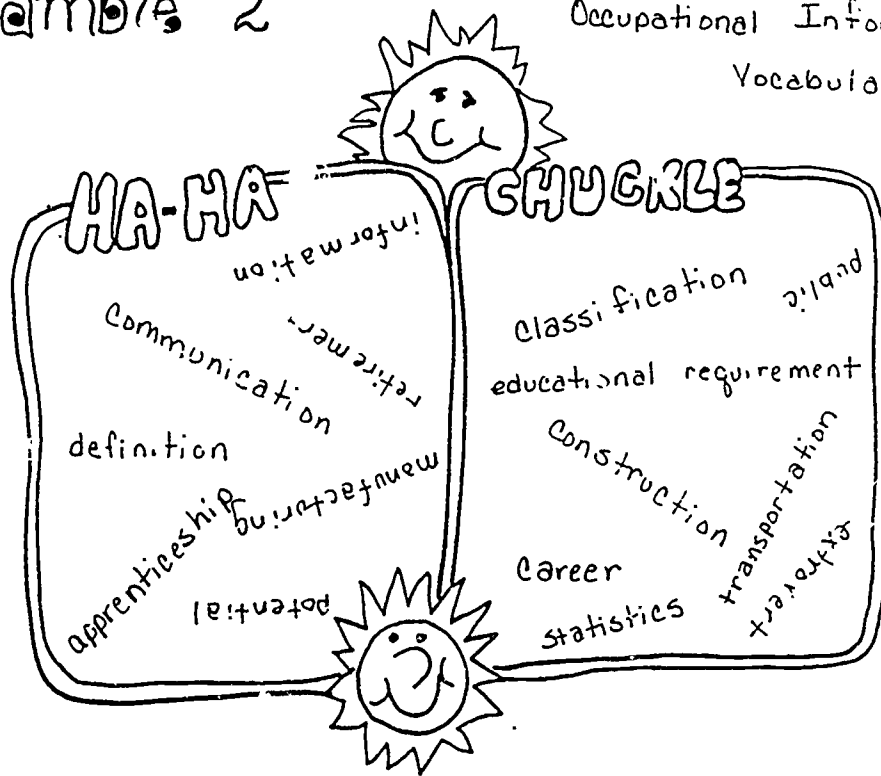 ample 2
Occupational Info
Vocabula
HA-HA
information
communication
retiremer
definition
manufactoring
apprenticeship
potential
CHUCKLE
classification
public
educational requirement
construction
transportation
extrovert
career
statistics